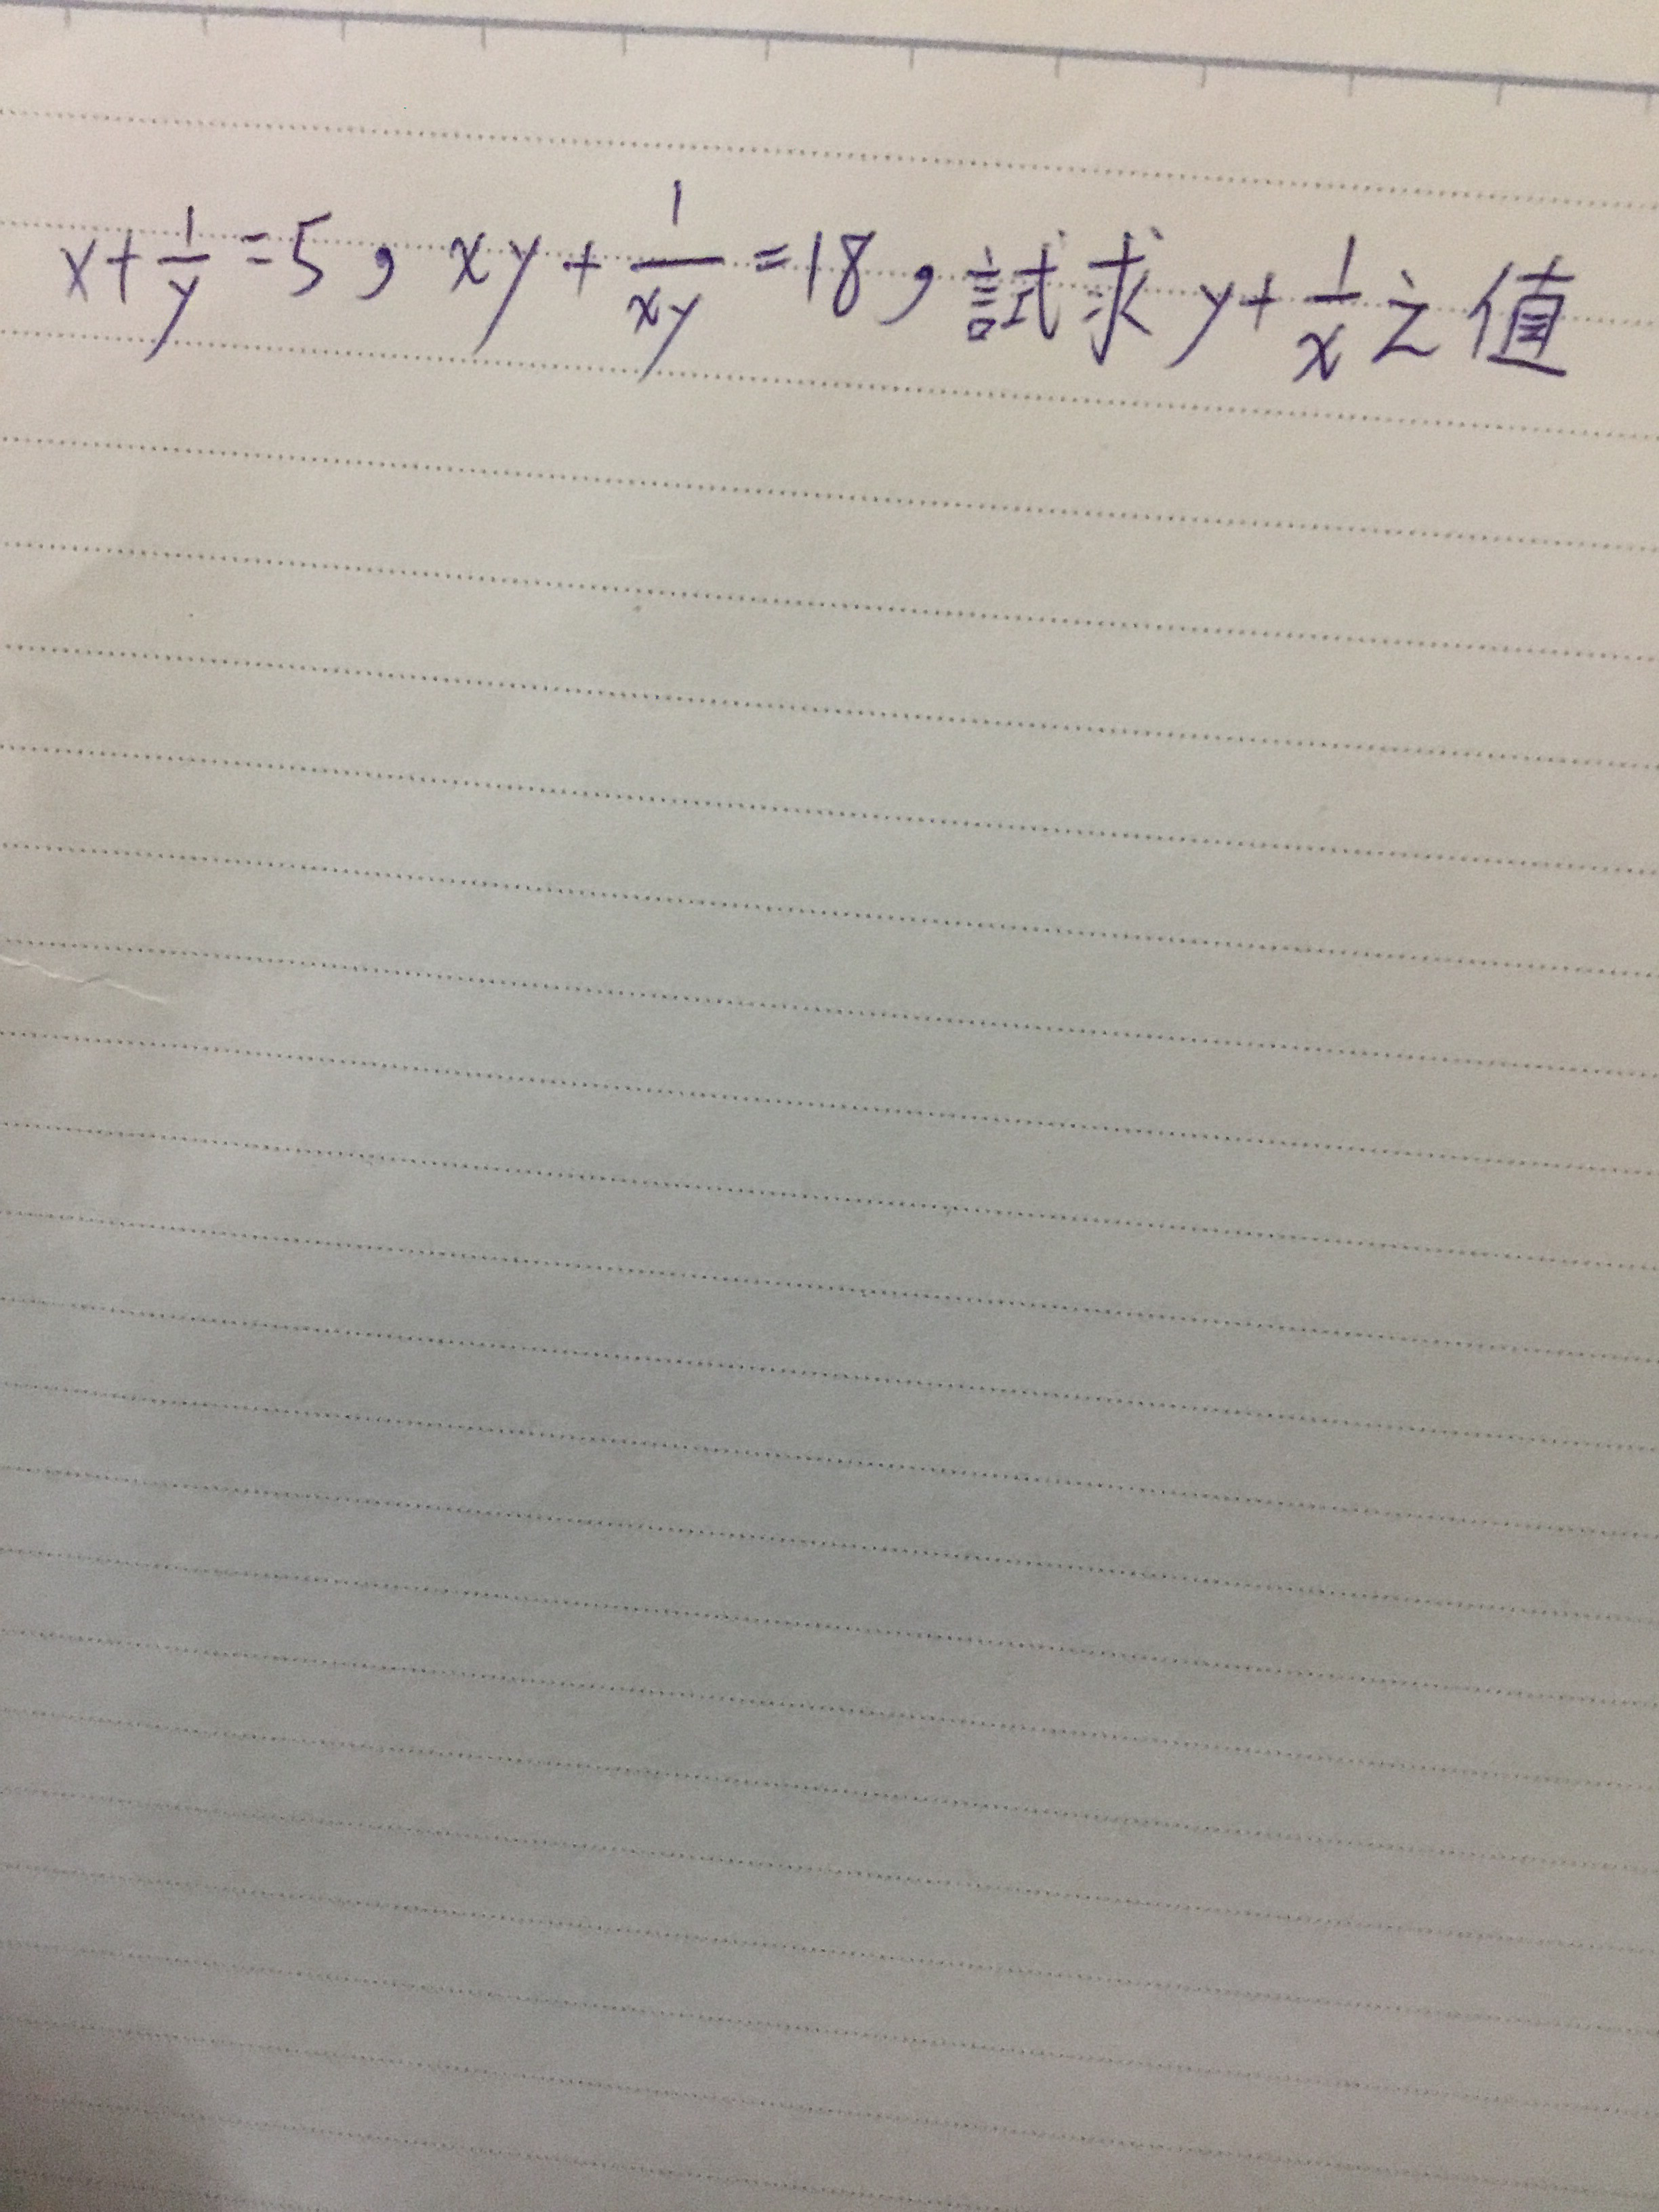 x+1/y=5，xy+1/xy=18，試求y+1/x之值